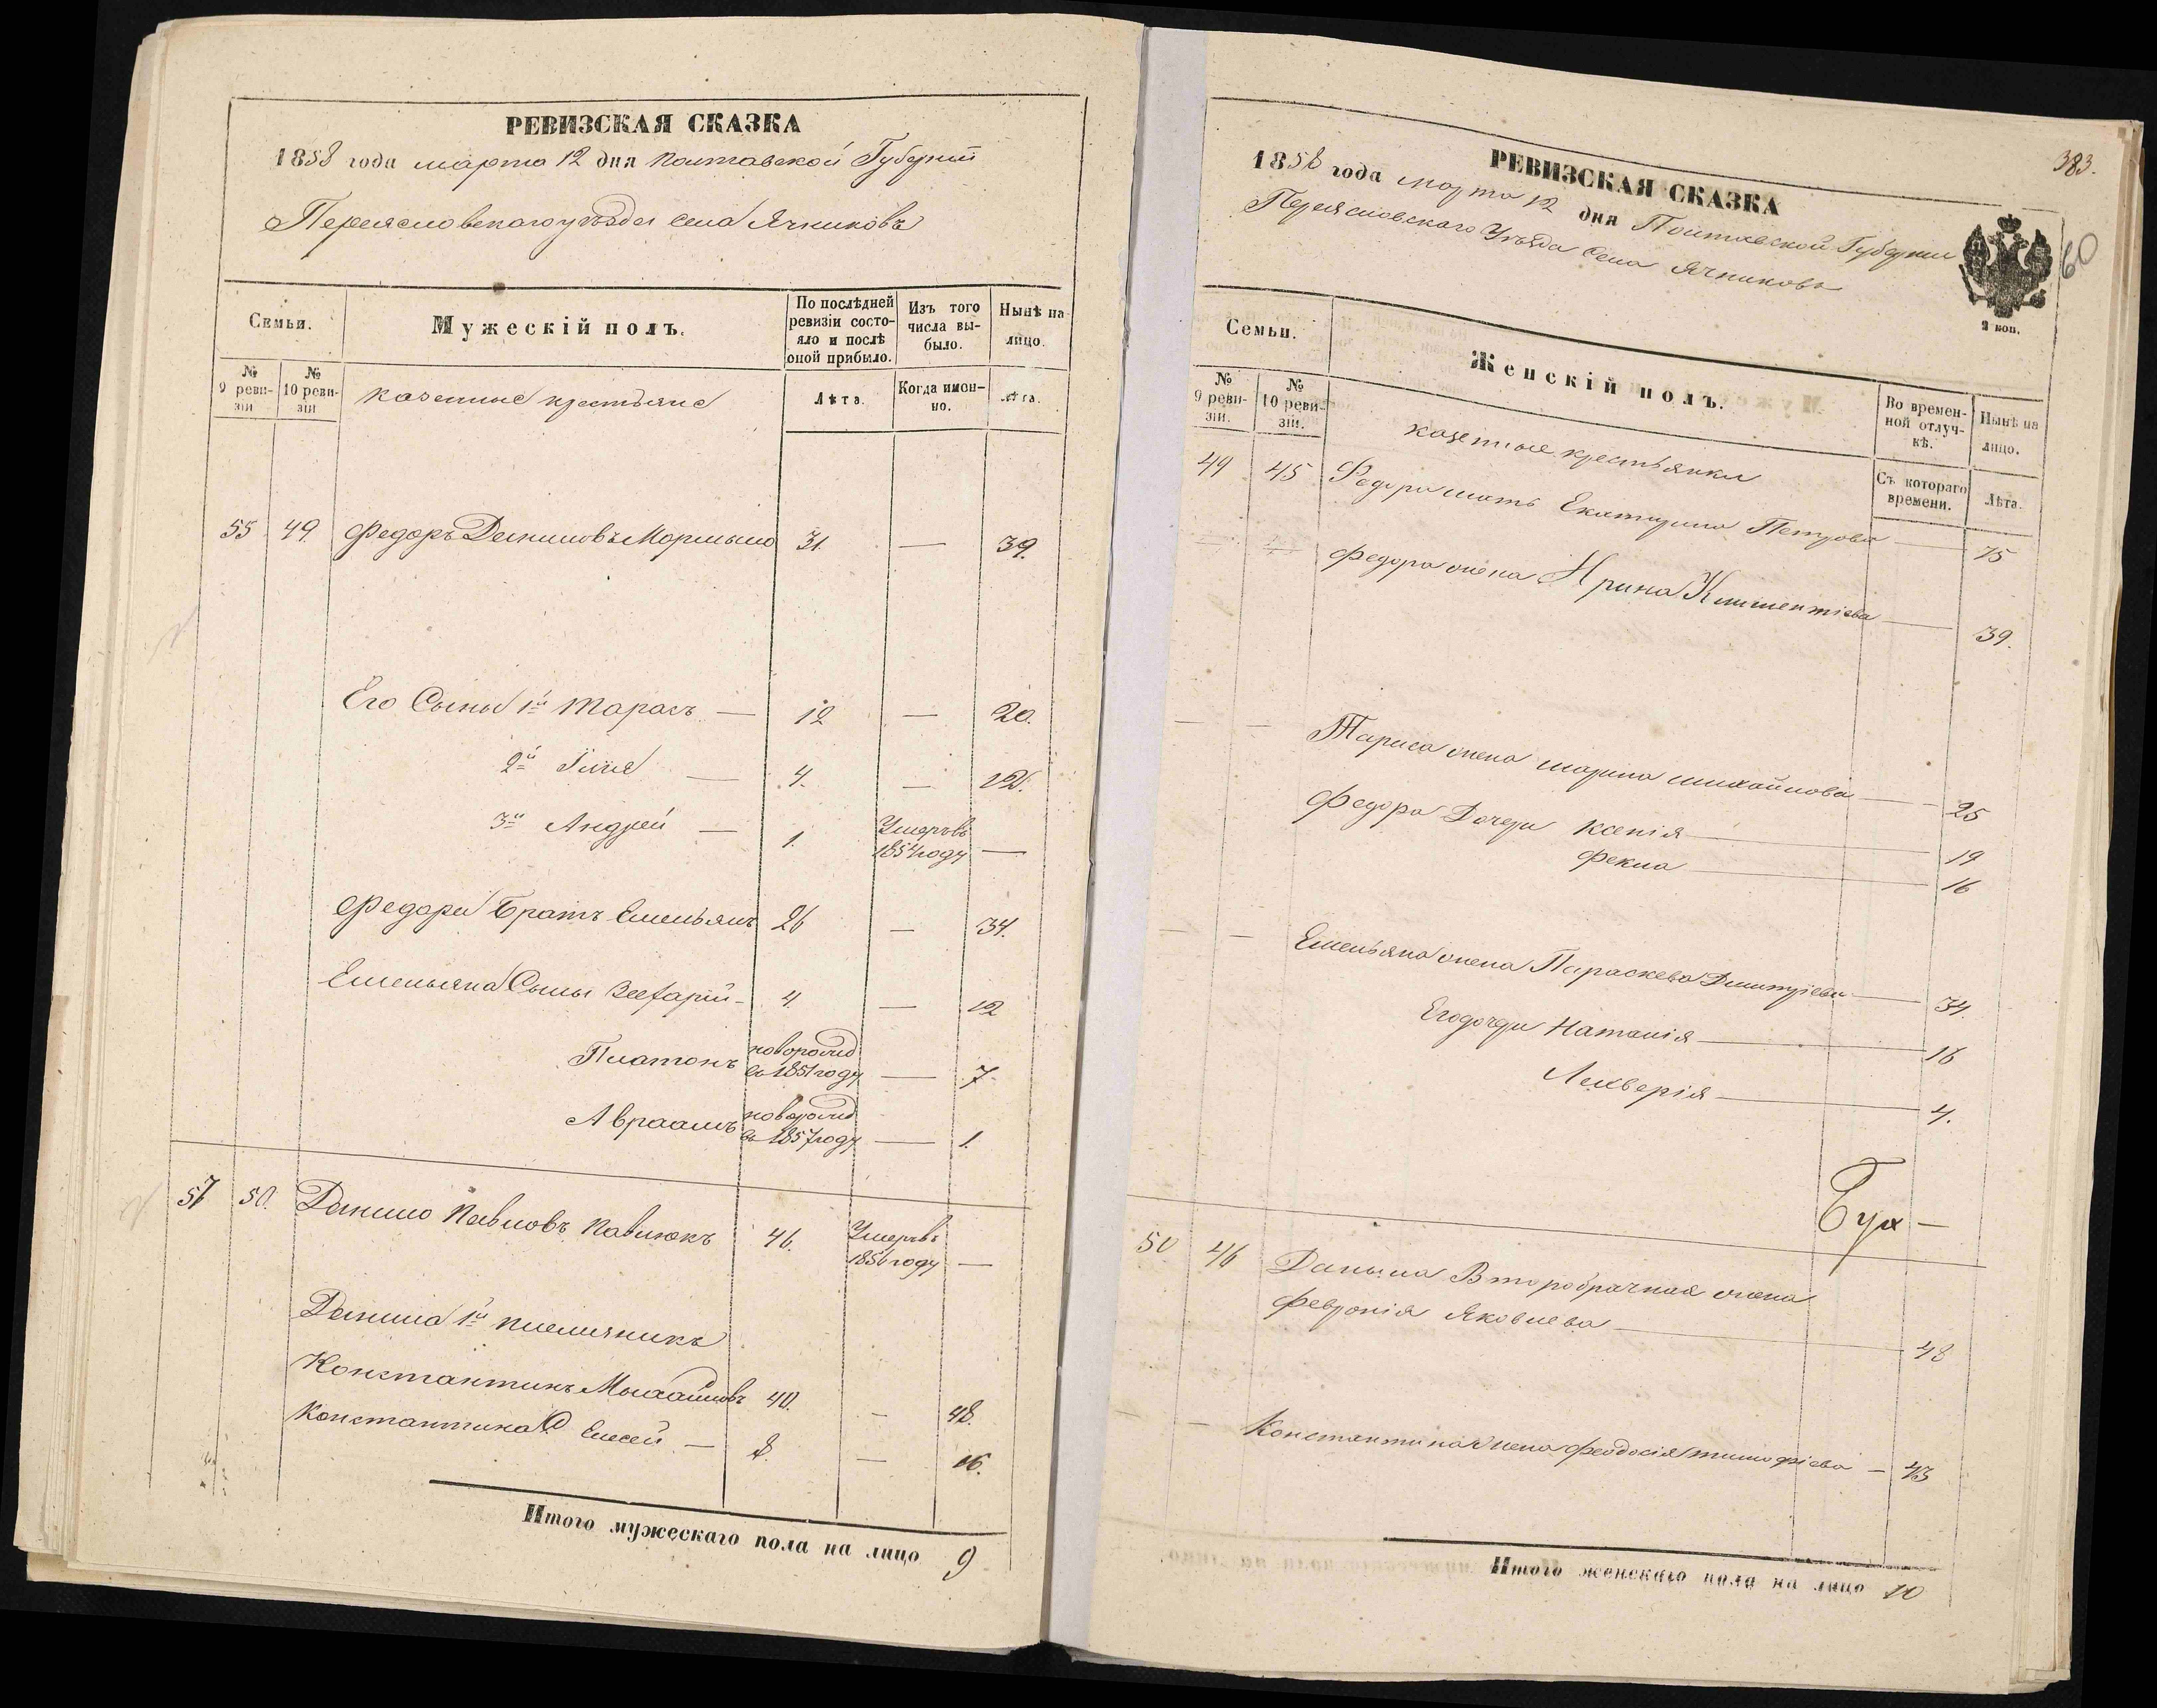 РЕВИЗСКАЯ СКАЗКА
1858 года марта 12 дня Полтавской Губернии
Переясловскаго уѣзда села Ячниковъ
Семьи.
Мужескій полъ.
По послѣдней ревизіи состояло и послѣ оной прибыло.
Изъ того числа выбыло.
Нынѣ на лицо.
№ 9 ревизіи
№ 10 ревизіи
казенные крестьяне
Лѣта.
Когда именно.
Лѣта.
55 49. Федоръ Даниловъ 31. — 39.
Его Сыны 1й Тарасъ — 12 — 20.
2й Илія — 4. — 12.
3й Андрей — 1. Умеръ въ 1854 году —
Федора Братъ Емельянъ 26 — 34.
Емельяна Сыны — 4 — 12
Платонъ новорожд въ 1851 году — 7
Авраамъ новорожд въ 1857 году — 1.
57 50. Данило Павловъ Павлюкъ 46. Умеръ въ 1856 году —
Данила 1й племяникъ
Константинъ Михайловъ 40. — 48.
Константина С Елесей — 8. — 16.
Итого мужескаго пола на лицо 9
383.
60
РЕВИЗСКАЯ СКАЗКА
1858 года марта 12 дня Полтавской Губернии
Переясловскаго Уѣзда села Ячниковъ
2 коп.
Семьи.
Женскій полъ.
Во временной отлучкѣ.
Нынѣ на лицо.
№ 9 ревизіи.
№ 10 ревизіи.
казенные крестьянки
Съ котораго времени.
Лѣта.
49 45 Федора мать Екатерина Петрова — 75
Федора жена Ирина Климентіева — 39.
— — Тараса жена Марина Михайлова — 25
Федора Дочери Ксенія — 19
Фекла — 16
— — Емельяна жена Параскева Димитріева — 34.
Его дочери Наталія — 16
Лекверія — 4.
50. 46 Данила Второбрачная жена
Февронія Яковлева — 48
— — Константина жена Феодосія Тимофіева — 43
Итого женскаго пола на лицо 10